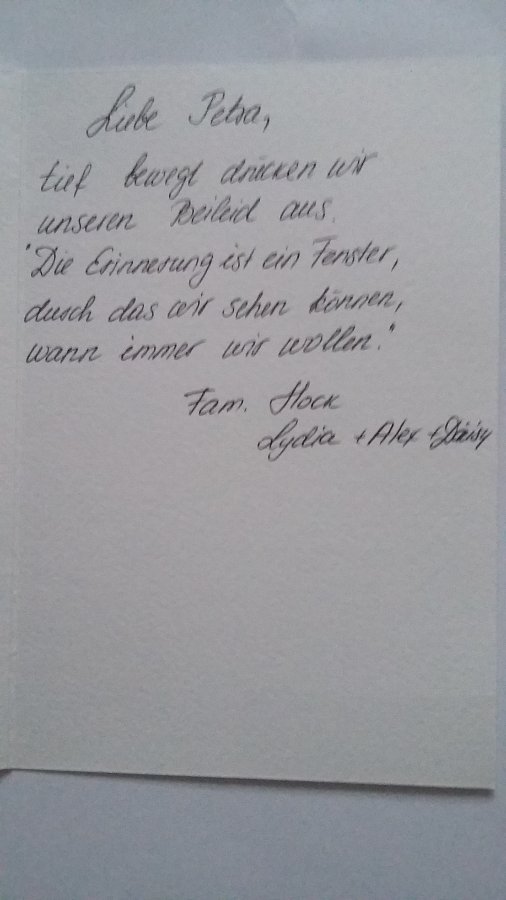 Liebe Petra,
tief bewegt drücken wir
unseren Beileid aus.
"Die Erinnerung ist ein Fenster,
durch das wir sehen können,
wann immer wir wollen."
Fam. Hock
Lydia + Alex + Daisy